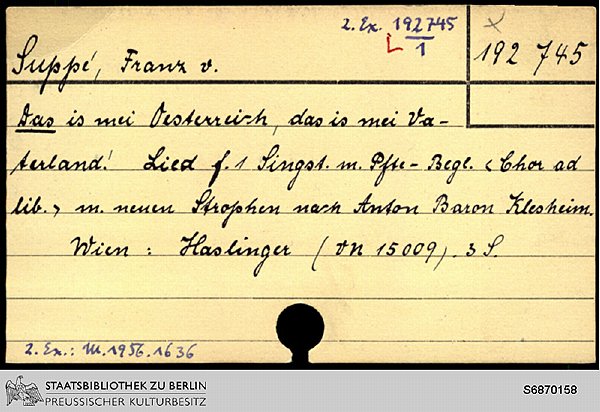 2. Ex. 192745
1
x
192 745
Suppé, Franz v.
Das is mei Oesterreich, das is mei Va-
terland! Lied f. 1 Singst. m. Pfte-Begl. <Chor ad
lib.> m. neuen Strophen nach Anton Baron Klesheim.
Wien: Haslinger (VN 15009). 3 S.
2. Ex.: M.1956.1636
STAATSBIBLIOTHEK ZU BERLIN
PREUSSISCHER KULTURBESITZ
S6870158